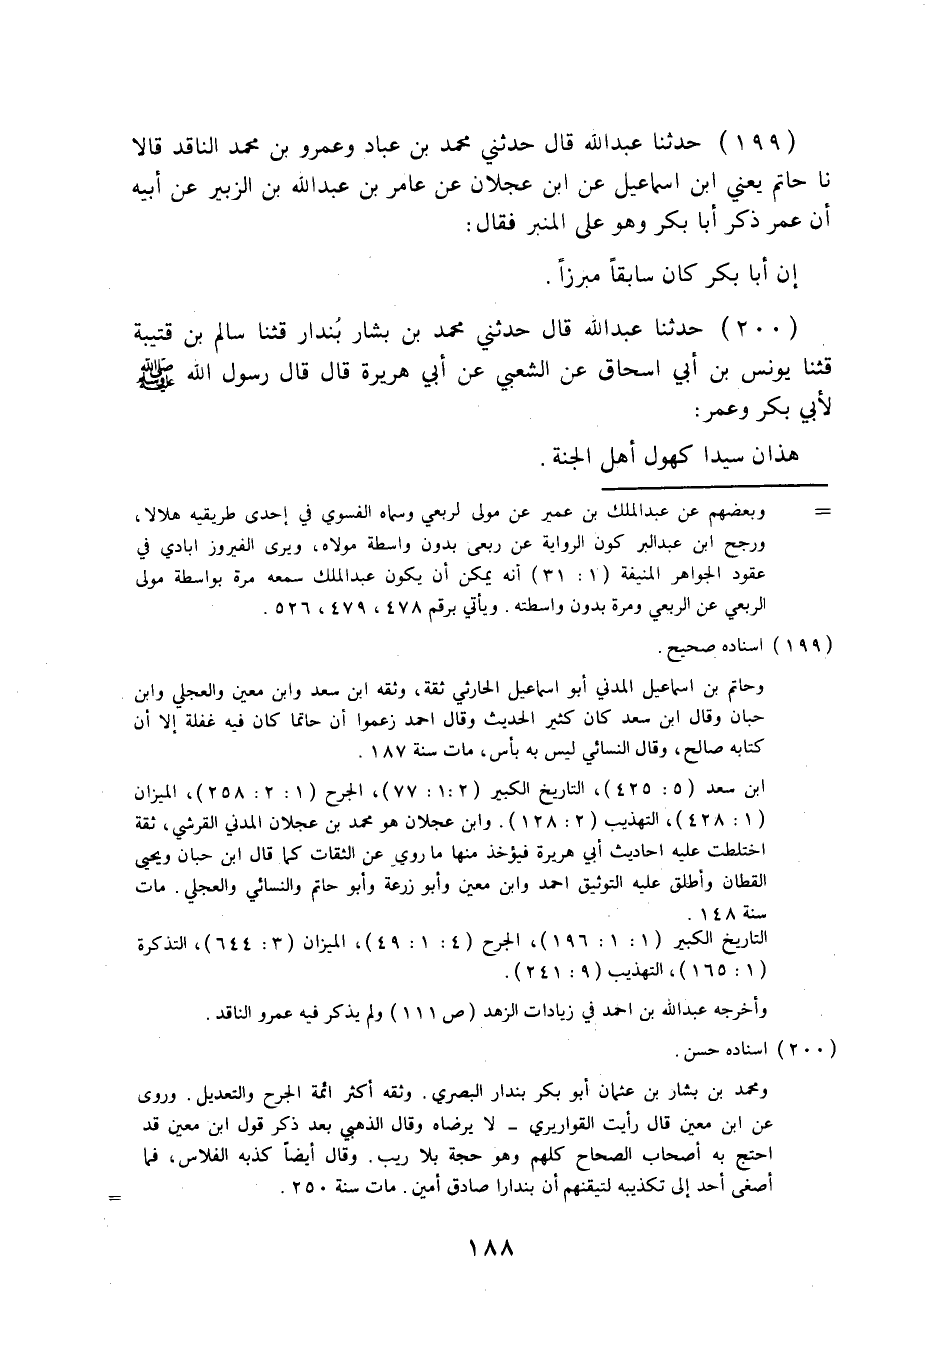 (١٩٩) حدثنا عبدالله قال حدثني محمد بن عباد وعمرو بن محمد الناقد قالا
نا حاتم يعني ابن اسماعيل عن ابن عجلان عن عامر بن عبدالله بن الزبير عن أبيه
أن عمر ذكر أبا بكر وهو على المنبر فقال:
إن أبا بكر كان سابقاً مبرزاً.
(٢٠٠) حدثنا عبدالله قال حدثني محمد بن بشار بُندار قثنا سالم بن قتيبة
قثنا يونس بن أبي اسحاق عن الشعبي عن أبي هريرة قال قال رسول الله ﷺ
لأبي بكر وعمر:
هذان سيدا كهول أهل الجنة.
= وبعضهم عن عبدالملك بن عمير عن مولى لربعي وسماه الفسوي في إحدى طريقيه هلالا،
ورجح ابن عبدالبر كون الرواية عن ربعى بدون واسطة مولاه، ويرى الفيروز ابادي في
عقود الجواهر المنيفة (١: ٣١) أنه يمكن أن يكون عبدالملك سمعه مرة بواسطة مولى
الربعي عن الربعي ومرة بدون واسطته. ويأتي برقم ٤٧٨، ٤٧٩، ٥٢٦.
(١٩٩) اسناده صحيح.
وحاتم بن اسماعيل المدني أبو اسماعيل الحارثي ثقة، وثقه ابن سعد وابن معين والعجلي وابن
حبان وقال ابن سعد كان كثير الحديث وقال احمد زعموا أن حاتما كان فيه غفلة إلا أن
كتابه صالح، وقال النسائي ليس به بأس، مات سنة ١٨٧.
ابن سعد (٥: ٤٢٥)، التاريخ الكبير (١:٢: ٧٧)، الجرح (١: ٢: ٢٥٨)، الميزان
(١: ٤٢٨)، التهذيب (٢: ١٢٨). وابن عجلان هو محمد بن عجلان المدني القرشي، ثقة
اختلطت عليه احاديث أبي هريرة فيؤخذ منها ما روي عن الثقات كما قال ابن حبان ويحيى
القطان وأطلق عليه التوثيق احمد وابن معين وأبو زرعة وأبو حاتم والنسائي والعجلي. مات
سنة ١٤٨.
التاريخ الكبير (١: ١: ١٩٦)، الجرح (٤: ١: ٤٩)، الميزان (٣: ٦٤٤)، التذكرة
(١: ١٦٥)، التهذيب (٩: ٢٤١).
وأخرجه عبدالله بن احمد في زيادات الزهد (ص ١١١) ولم يذكر فيه عمرو الناقد.
(٢٠٠) اسناده حسن.
ومحمد بن بشار بن عثمان أبو بكر بندار البصري. وثقه أكثر ائمة الجرح والتعديل. وروى
عن ابن معين قال رأيت القواريري – لا يرضاه وقال الذهبي بعد ذكر قول ابن معين قد
احتج به أصحاب الصحاح كلهم وهو حجة بلا ريب. وقال أيضاً كذبه الفلاس، فما
أصغى أحد إلى تكذيبه لتيقنهم أن بندارا صادق أمين. مات سنة ٢٥٠.
=
١٨٨